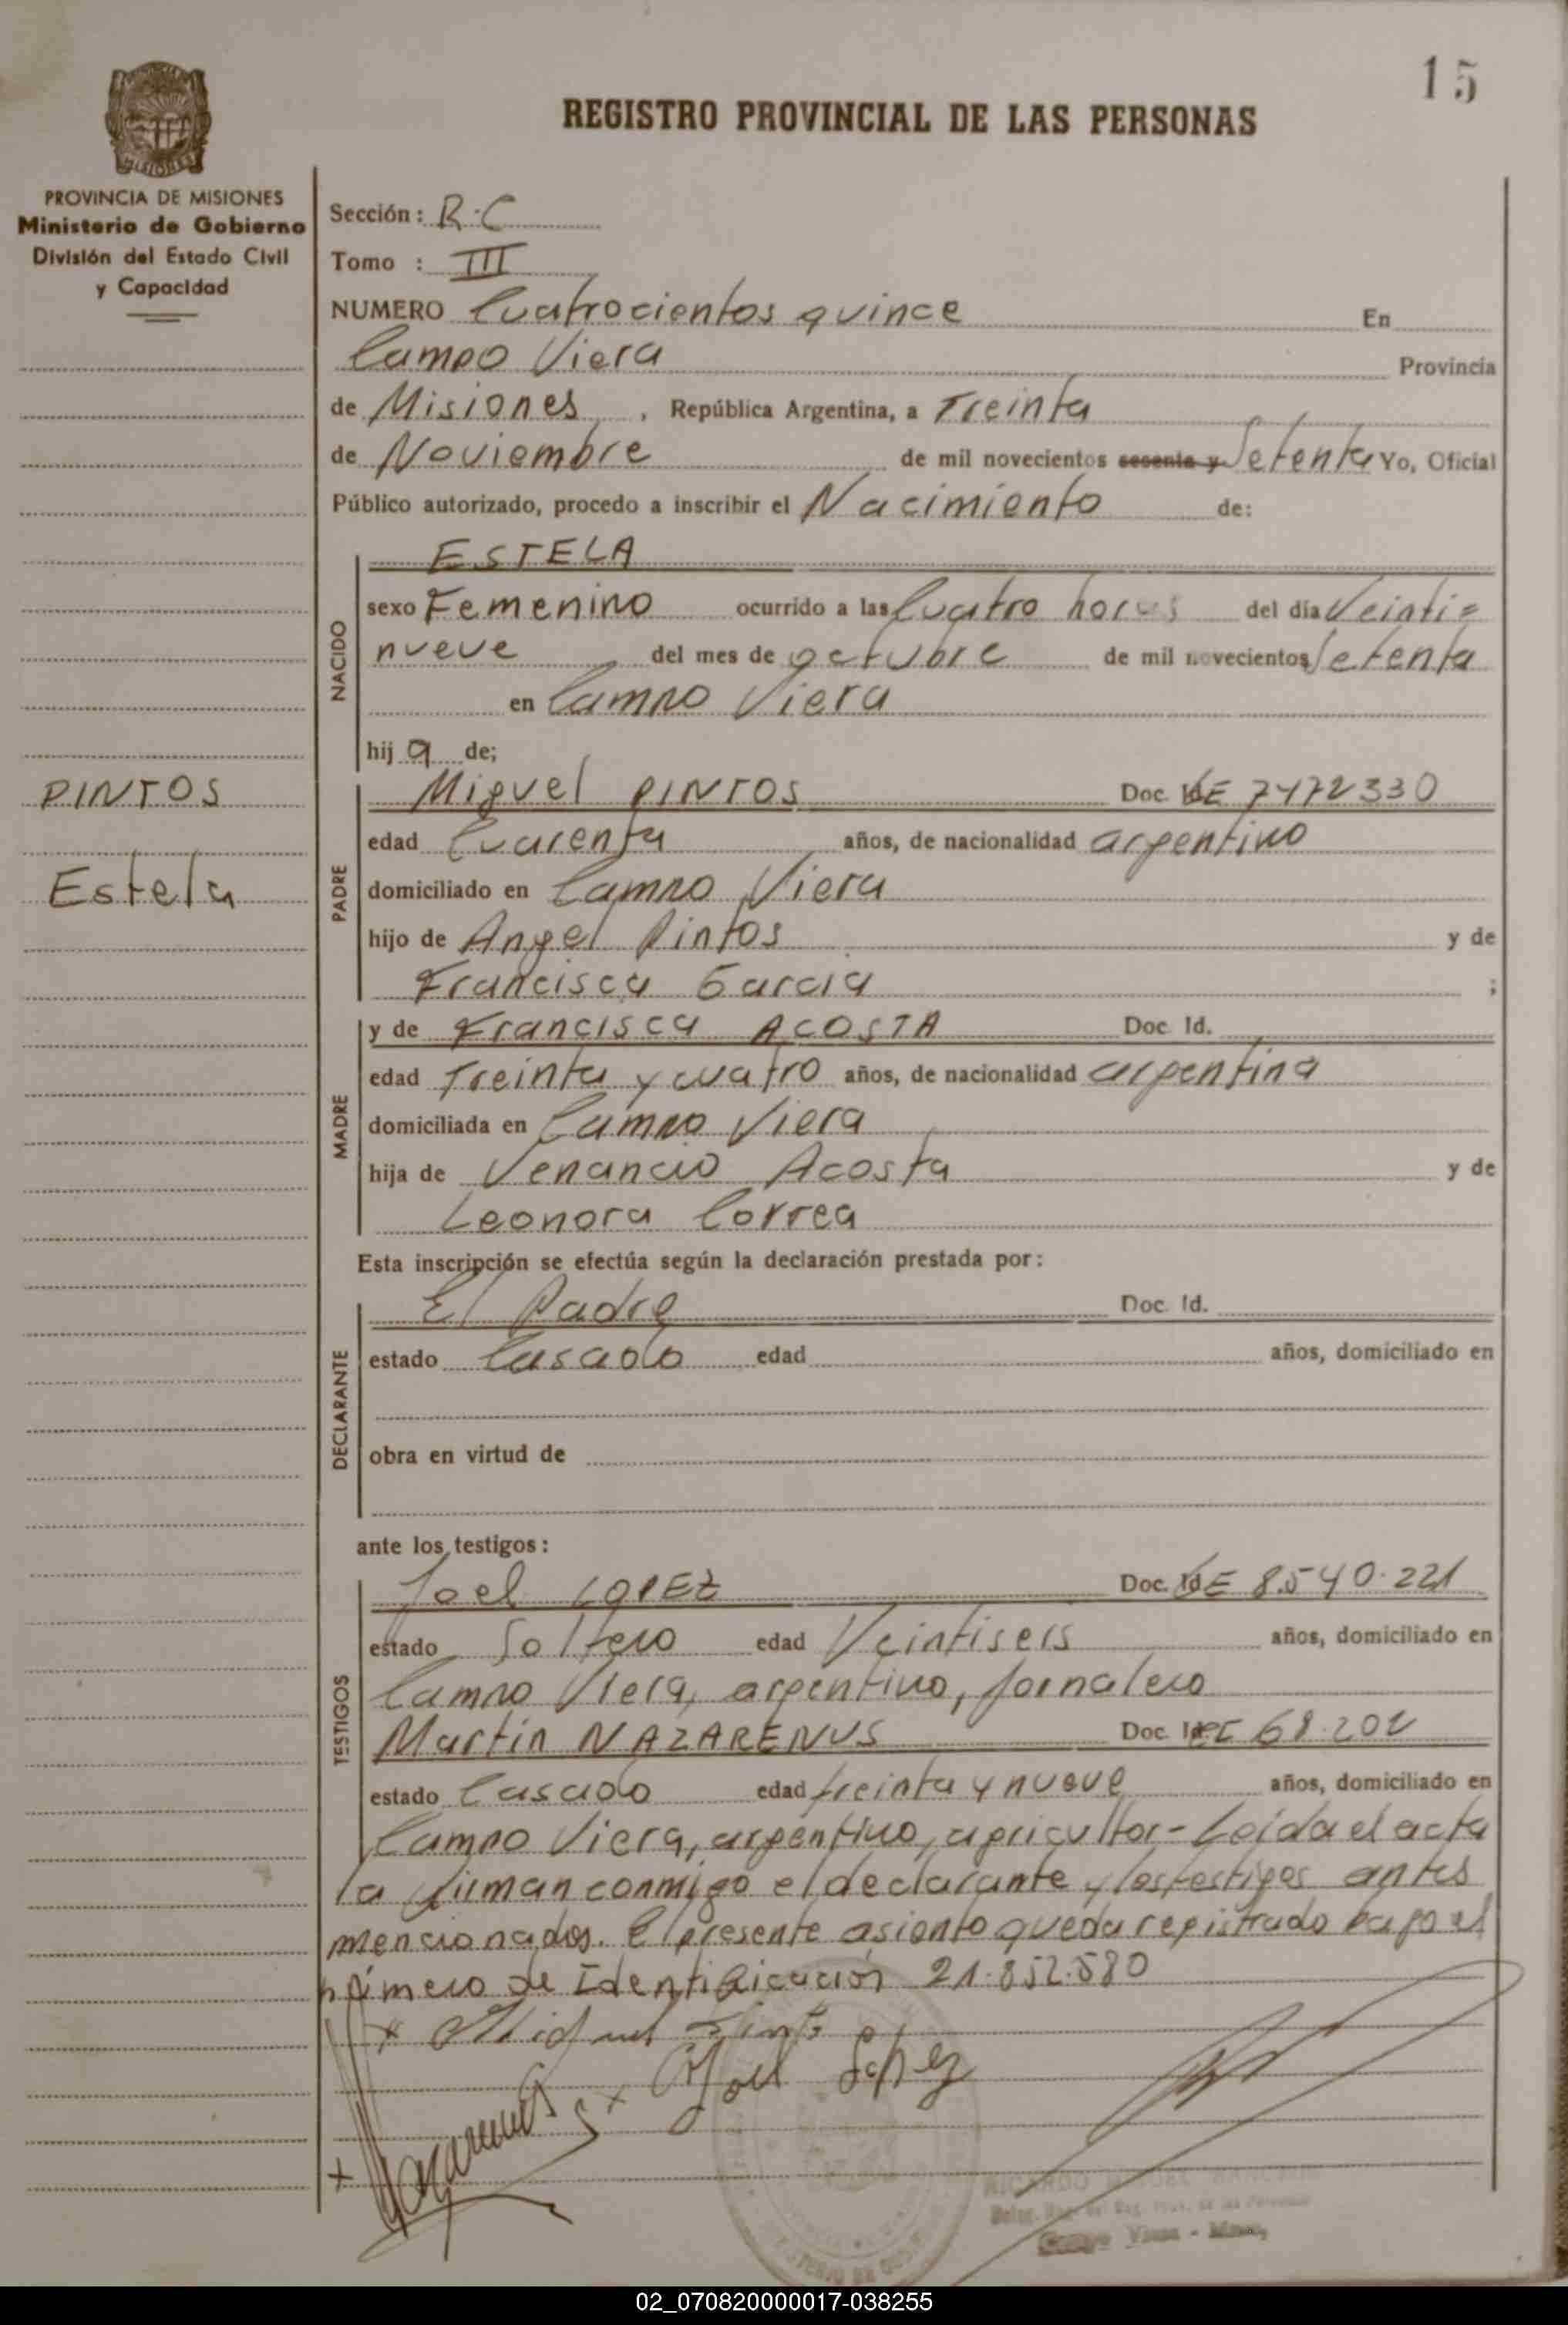 15
REGISTRO PROVINCIAL DE LAS PERSONAS
MISIONES
PROVINCIA DE MISIONES
Ministerio de Gobierno
División del Estado Civil
y Capacidad
Sección: R.C
Tomo : III
NUMERO Cuatrocientos quince En
Campo Viera Provincia
de Misiones , República Argentina, a Treinta
de Noviembre de mil novecientos sesenta y Setenta Yo, Oficial
Público autorizado, procedo a inscribir el Nacimiento de:
NACIDO
ESTELA
sexo Femenino ocurrido a las Cuatro horas del día Veinti=
nueve del mes de octubre de mil novecientos Setenta
en Campo Viera
hij a de;
PINTOS
Estela
PADRE
Miguel PINTOS Doc. LE 7472330
edad Cuarenta años, de nacionalidad argentino
domiciliado en Campo Viera
hijo de Angel Pintos y de
Francisca Garcia ;
MADRE
y de Francisca ACOSTA Doc Id.
edad Treinta y cuatro años, de nacionalidad argentina
domiciliada en Campo Viera
hija de Venancio Acosta y de
Leonora Correa
Esta inscripción se efectúa según la declaración prestada por:
DECLARANTE
El Padre Doc. Id.
estado Casado edad años, domiciliado en
obra en virtud de
ante los testigos:
TESTIGOS
Joel LOPEZ Doc. LE 8.540.221
estado Soltero edad Veintiseis años, domiciliado en
Campo Viera, argentino, jornalero
Martín NAZARENUS Doc. 68.202
estado Casado edad treinta y nueve años, domiciliado en
Campo Viera, argentino, agricultor- Leída el acta
la firman conmigo el declarante y los testigos antes
mencionados. El presente asiento queda registrado bajo el
número de Identificación 21.852.580
x Miguel Pinto
x Joel Lopez
x Nazarenus
Campo Viera - Mnes.
02_070820000017-038255